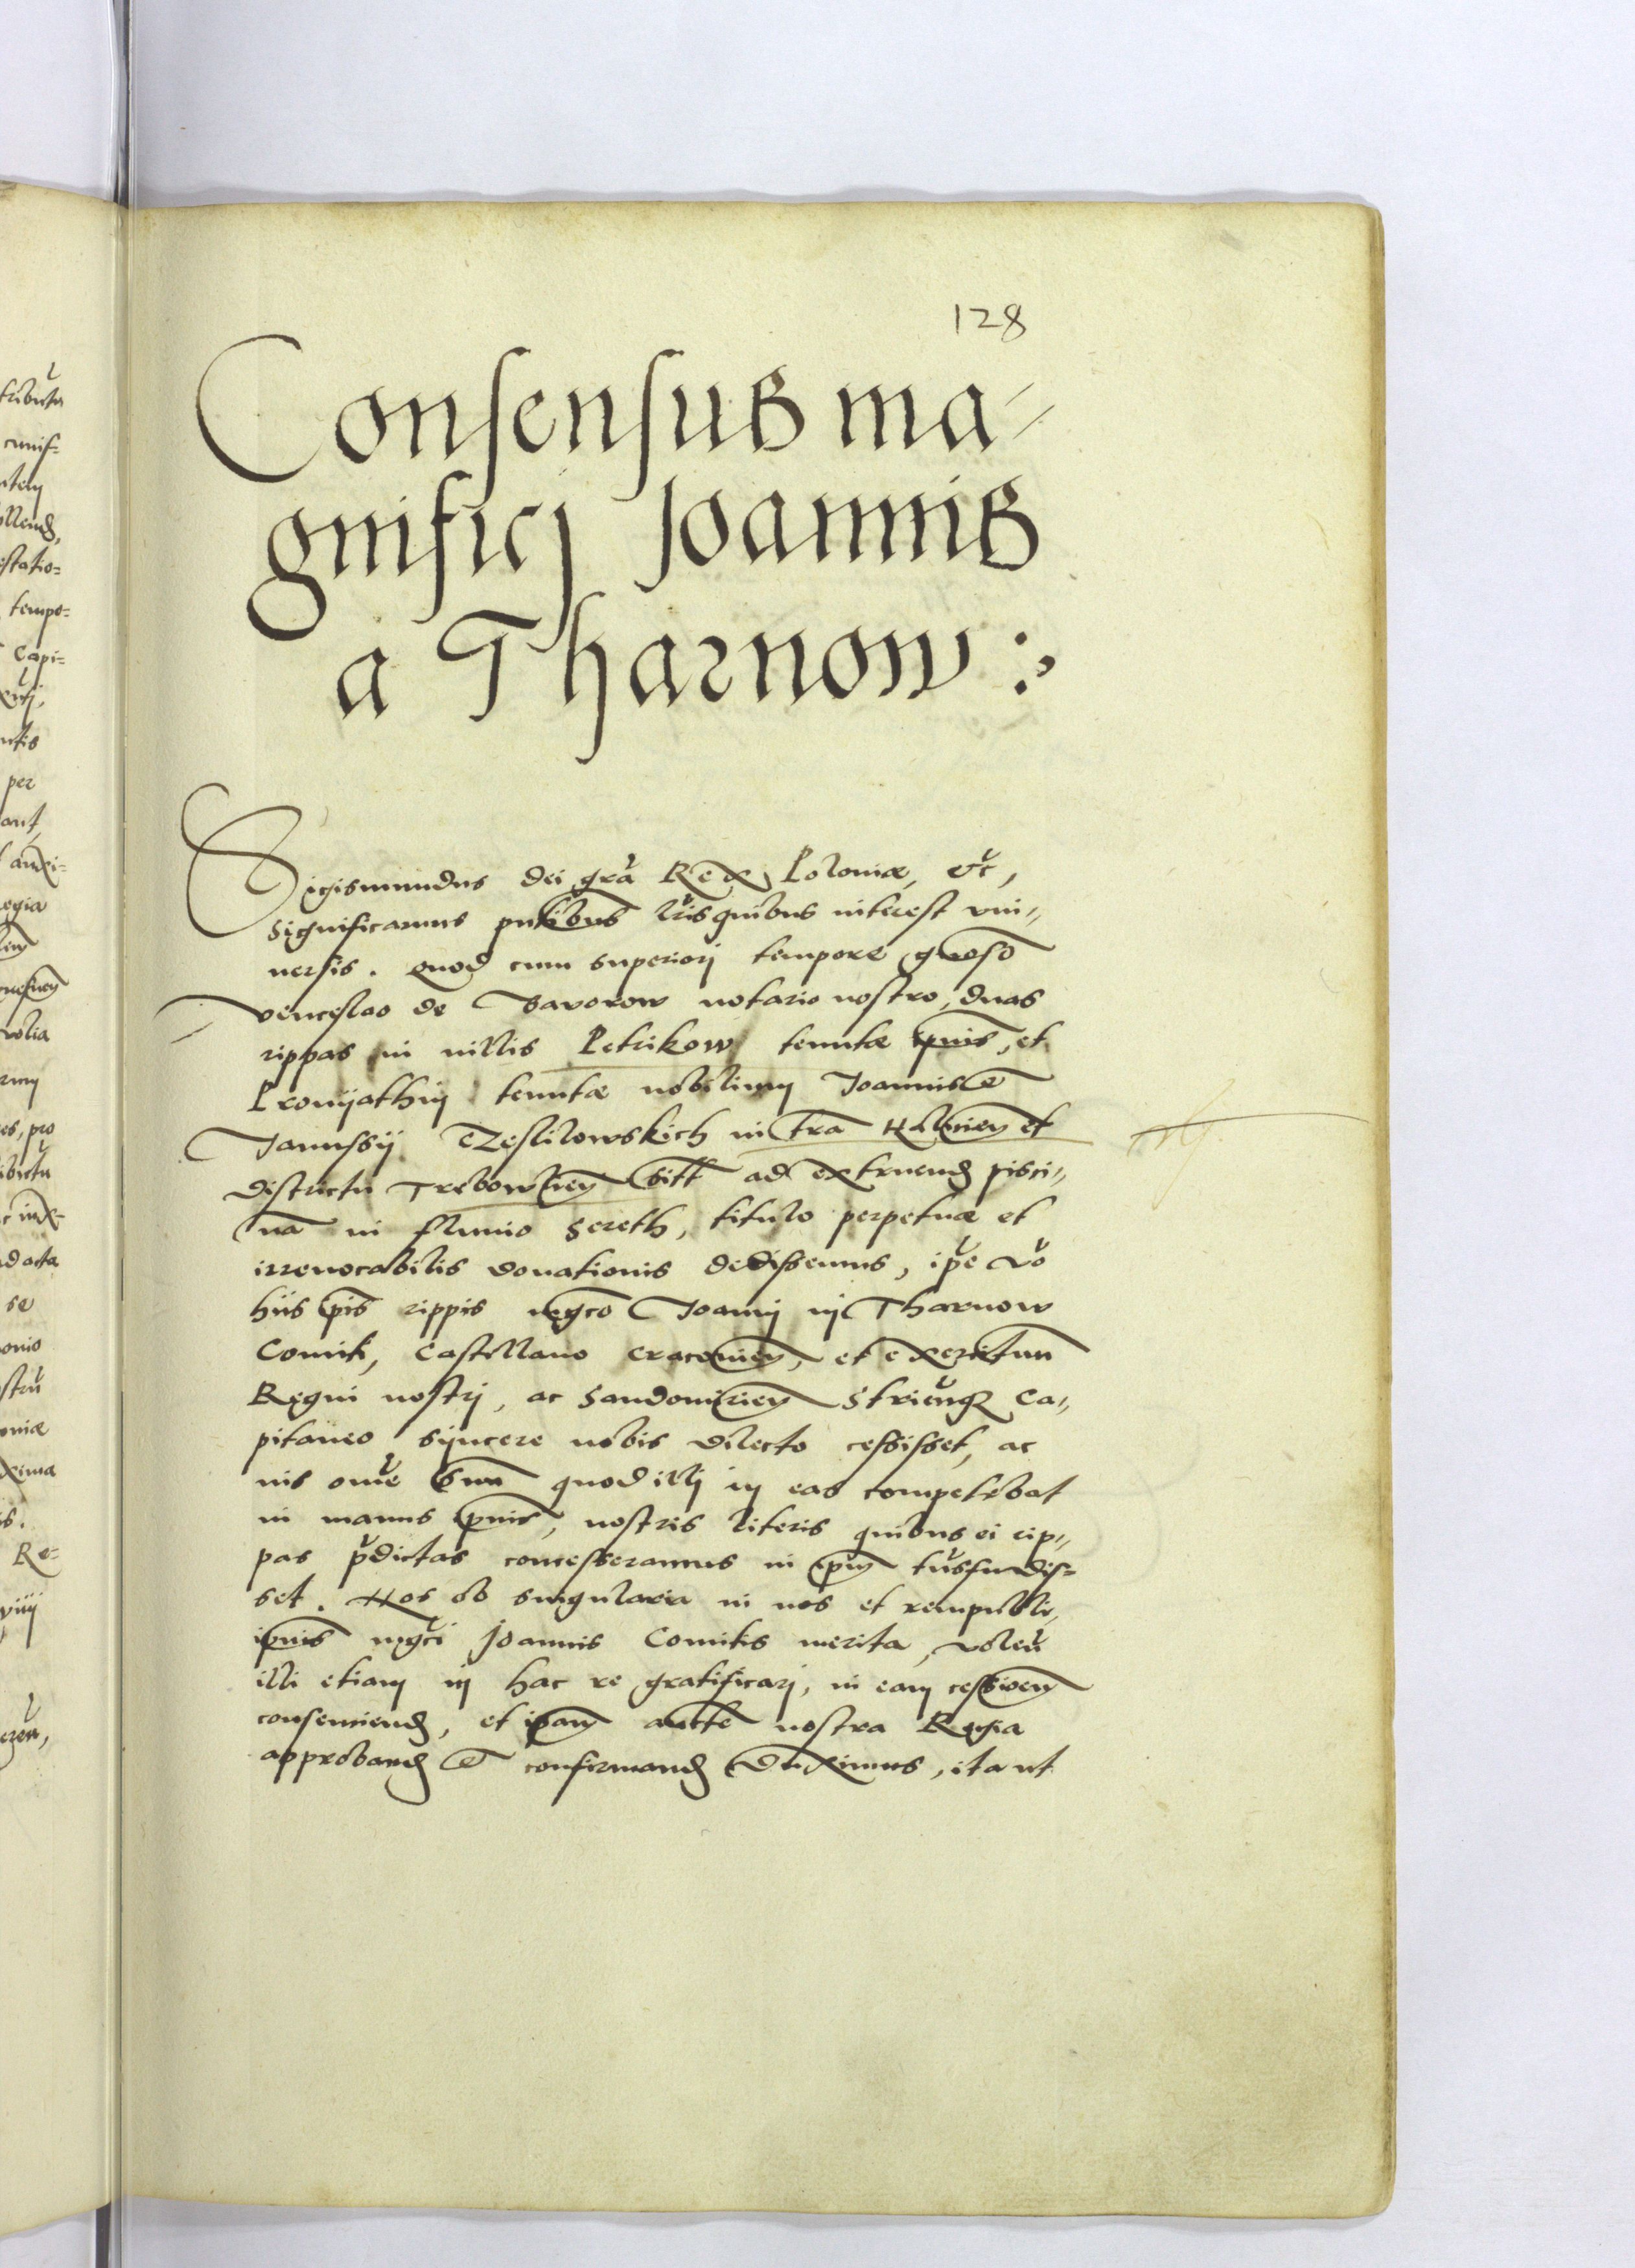 128
Consensus ma-
gnificj Joannis
a Tharnow :
Sigismundus dei gra Rex Poloniæ, etc,
significamus pntibus lris quibus interest vni-
uersis. Quod cum superiorj tempore gnoso
Venceslao de Bavorow notario nostro, duas
rippas in villis Petrikow tenutæ ipius, et
Pronijathin tenutæ nobilium Joannis et
Janussij Czeslilowskich in tra Halicien et
districtu Trebowlien sitt ad extruend pisci-
na in fluuio Sereth, titulo perpetuæ et
irreuocabilis donationis dedissemus, ipe vo
hiis ipis rippis mgco Joannj in Tharnow
Comiti, Castellano Cracouien, et exercituum
Regni nostrj, ac Sandomirien Strienq Ca-
pitaneo syncere nobis dilecto cessisset, ac
ius omne suum quod illj in eas competebat
in manus ipius, nostris literis quibus ei rip-
pas pdictas concesseramus in ipm tusfudis-
set. Nos ob singularia in nos et rempubli,
ipius mgci Joannis Comitis merita, volen
illi etiam in hac re gratificarj, in eam cessioem
consentiend, et ipam aucte nostra Regia
approband et confirmand duximus, ita ut
tributu
Capi=
per
ant,
egia
volia
es, pro
ad acta
se
Re=